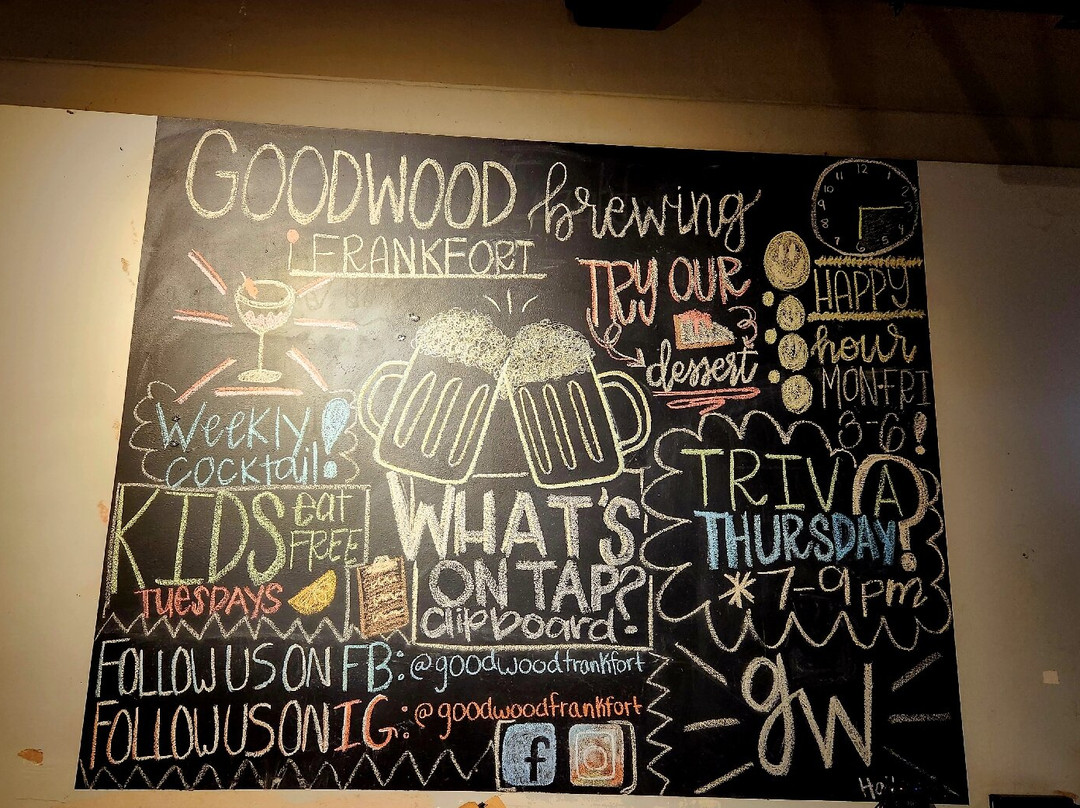 GOODWOOD brewing
FRANKFORT
12
3
6
9
10
TRY OUR
dessert
HAPPY
hour
MON-FRI
3-6!
Weekly
cocktail!
KIDS eat
FREE
TUESDAYS
WHAT'S
ON TAP?
clipboard.
TRIVIA?
THURSDAY
*7-9pm
FOLLOW US ON FB: @goodwoodfrankfort
FOLLOW US ON IG: @goodwoodfrankfort
f
gw